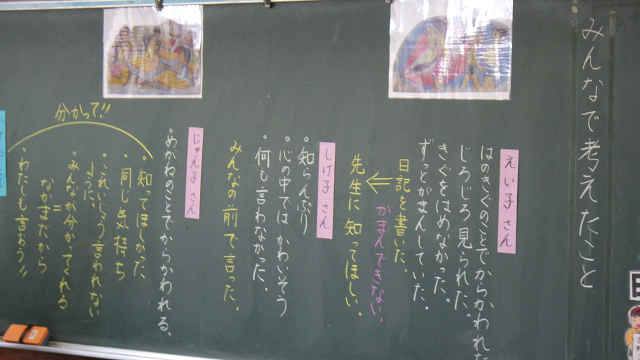 みんなで考えたこと
えい子さん
はのきぐのことでからかわれた
じろじろ見られた。
きぐをはめなかった。
ずっとがまんしていた。
日記を書いた。
がまんできない。
先生に知ってほしい。
しげ子さん
・知らんぷり
・心の中ではかわいそう
・何も言わなかった。
みんなの前で言った。
じゅん子さん
・めがねのことでからかわれる。
分かって!!
・知ってほしかった。
・同じ気持ち
・これいじょう言われない
ように。
・みんなが分かってくれる
なかまだから
わたしも言おう!!